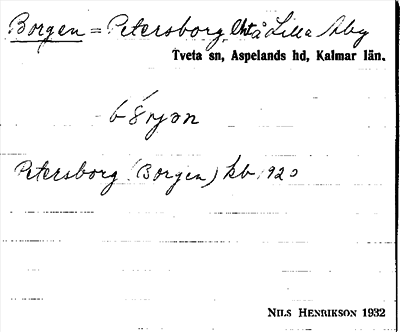 Borgen = Petersborg, Lht å Lilla Åby
Tveta sn, Aspelands hd, Kalmar län.
Petersborg (Borgen) kb 1920
NILS HENRIKSON 1932